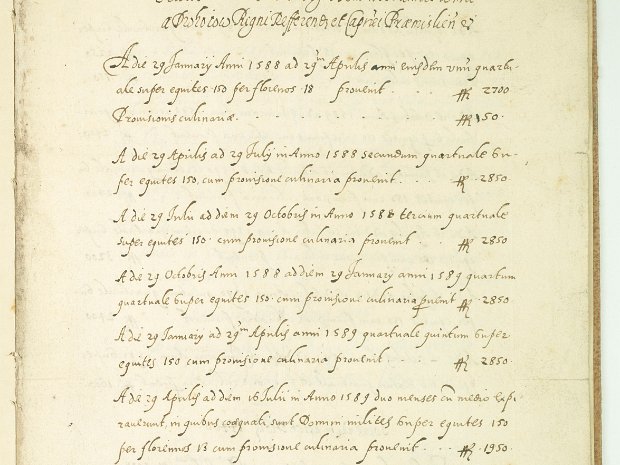 a Prohotow Regni Refferend, et Capnei Præmislien
A die 29 Januarij Anni 1588 ad 29m Aprilis anni eiusdem unũ quartu-
ale super equites 150 per florenos 18 provenit . . fl 2700
Provisionis culinariæ . . . . . . . fl 150 .
A die 29 Aprilis ad 29 July in Anno 1588 secundum quartuale su-
per equites 150, cum provisione culinaria provenit . . fl . 2850
A die 29 Julii ad diem 29 Octobris in Anno 1588 tercium quartuale
super equites 150 . cum provisione culinaria provenit . . . fl . 2850
A die 29 Octobris Anni 1588 ad diem 29 January anni 1589 quartum
quartuale super equites 150 . cum provisione culinaria puenit fl . 2850 .
A die 29 January ad 29m Aprilis anni 1589 quartuale quintum super
equites 150 cum provisione culinaria provenit . . . fl . 2850 .
A die 29 Aprilis ad diem 16 Julii in Anno 1589 duo menses cũ medio expi
raverunt, in quibus coæquali sunt Domini milites super equites 150
per florenos 13 cum provisione culinaria provenit . . fl . 1950 .